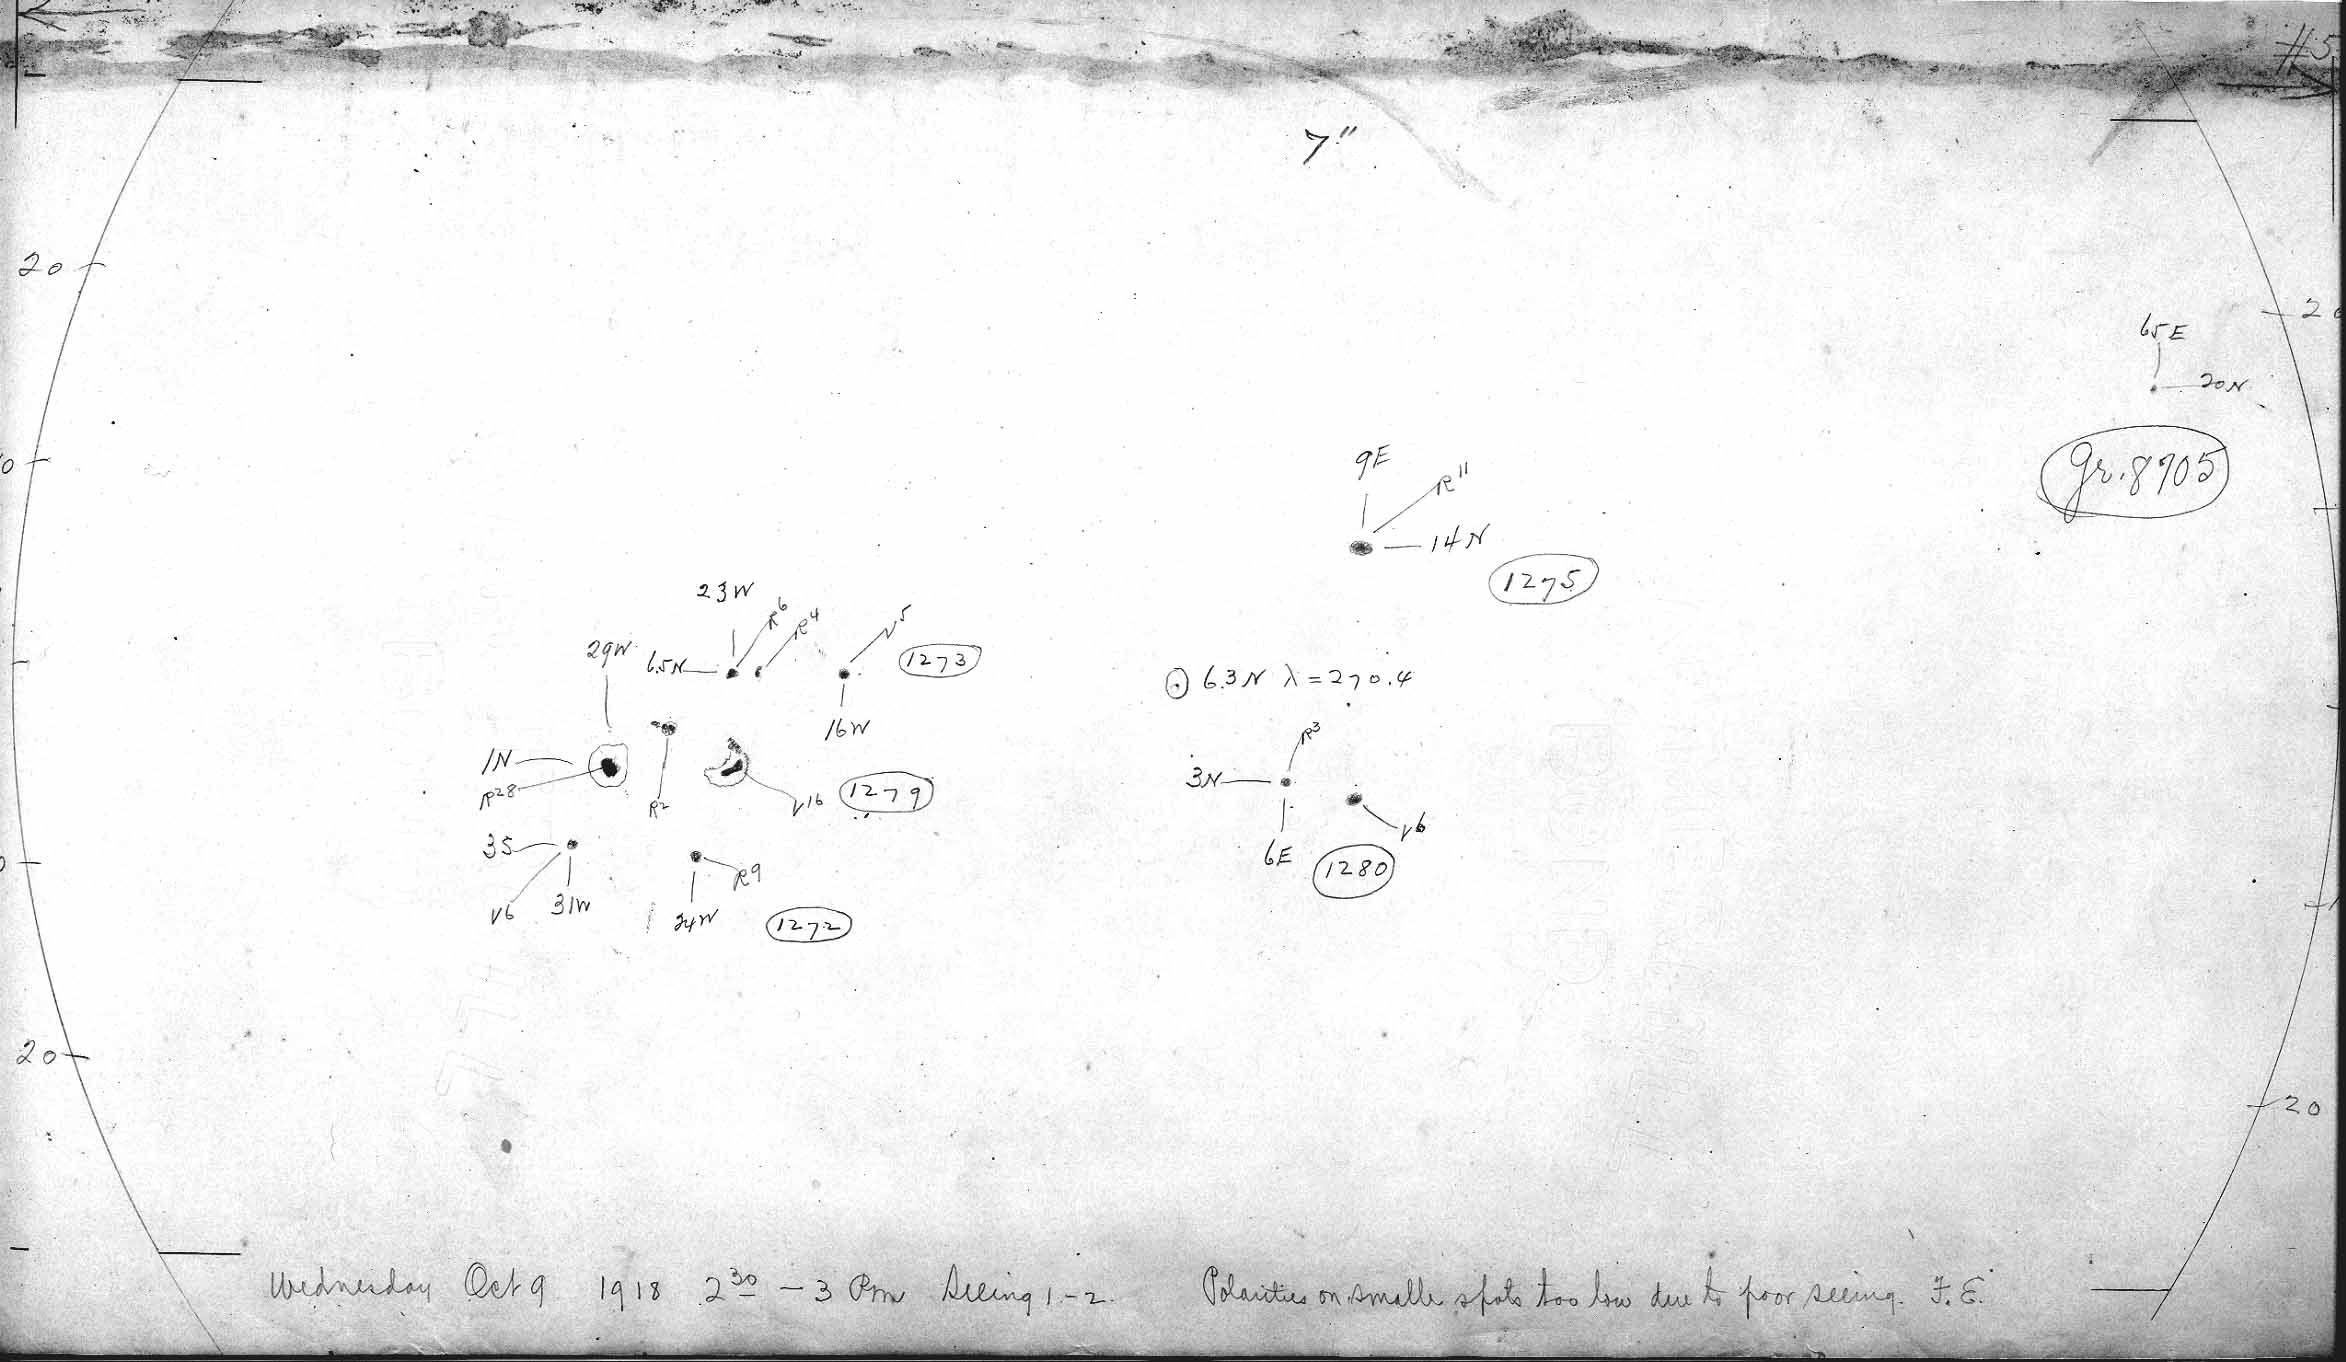 #5
7"
20
20
65E
20N
gr. 8705
0
9E
R11
14N
1275
23W
R6
R4
V5
1273
29W
6.5N
16W
⊙ 6.3N λ = 270.4
R3
1N
R28
R2
V16
1279
3N
V6
6E
1280
3S
V6
31W
R9
24W
1272
0
20
20
Wednesday Oct 9 1918 2 30 – 3 Pm Seeing 1-2. Polarities on smaller spots too low due to poor seeing. F.E.